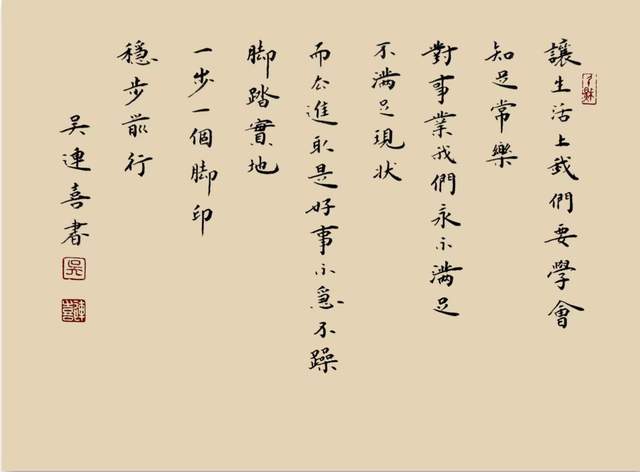 讓生活上我們要學會
知足常樂
對事業我們永不满足
不满足現状
而進取是好事不急不躁
脚踏實地
一步一個脚印
穩步前行
吴連喜書
吴
連喜